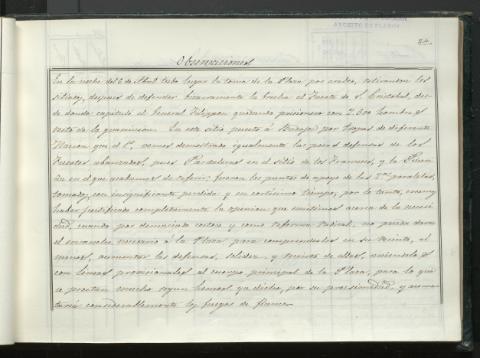 24.
Observaciones
En la noche del 6 de Abril tubo lugar la toma de la Plaza por asalto, retirandose los
sitiados, despues de defender bizarramente la brecha al Fuerte de S. Cristobal, des-
de donde capituló el General Filippon quedando prisionero con 2.600 hombres
resto de la guarnicion. En este sitio puesto á Badajoz por tropas de diferente
Nacion que el 1º, vemos demostrado igualmente las pocas defensas de los
Fuertes abanzados, pues Pardaleras en el sitio de los Franceses, y la Picuri-
ña en el que acabamos de referir, fueron los puntos de apoyo de las 2as paralelas,
tomados con insignificante perdida y en cortisimo tiempo, por lo tanto, creemos
haber justificado completamente la opinion que emitimos acerca de la necesi-
dad, cuando por demasiado costosa y como reforma radical, no pueda darse
el ensanche necesario á la Plaza para comprenderlos en su recinto, al
menos, aumentar las defensas, solidez, y recinto de ellos, uniendolos
con lineas provisionales al cuerpo principal de la Plaza, para lo que
se prestan mucho segun hemos ya dicho, por su proximidad, y aumen-
taria considerablemente los fuegos de flanco.